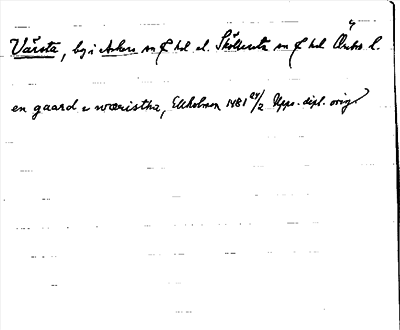 Värsta, by i Askers sn o hd el. Sköllersta sn o hd Örebro l.
en gaard e wæristha, Ekholmen 1481 24/2 Upps. dipl. orig.